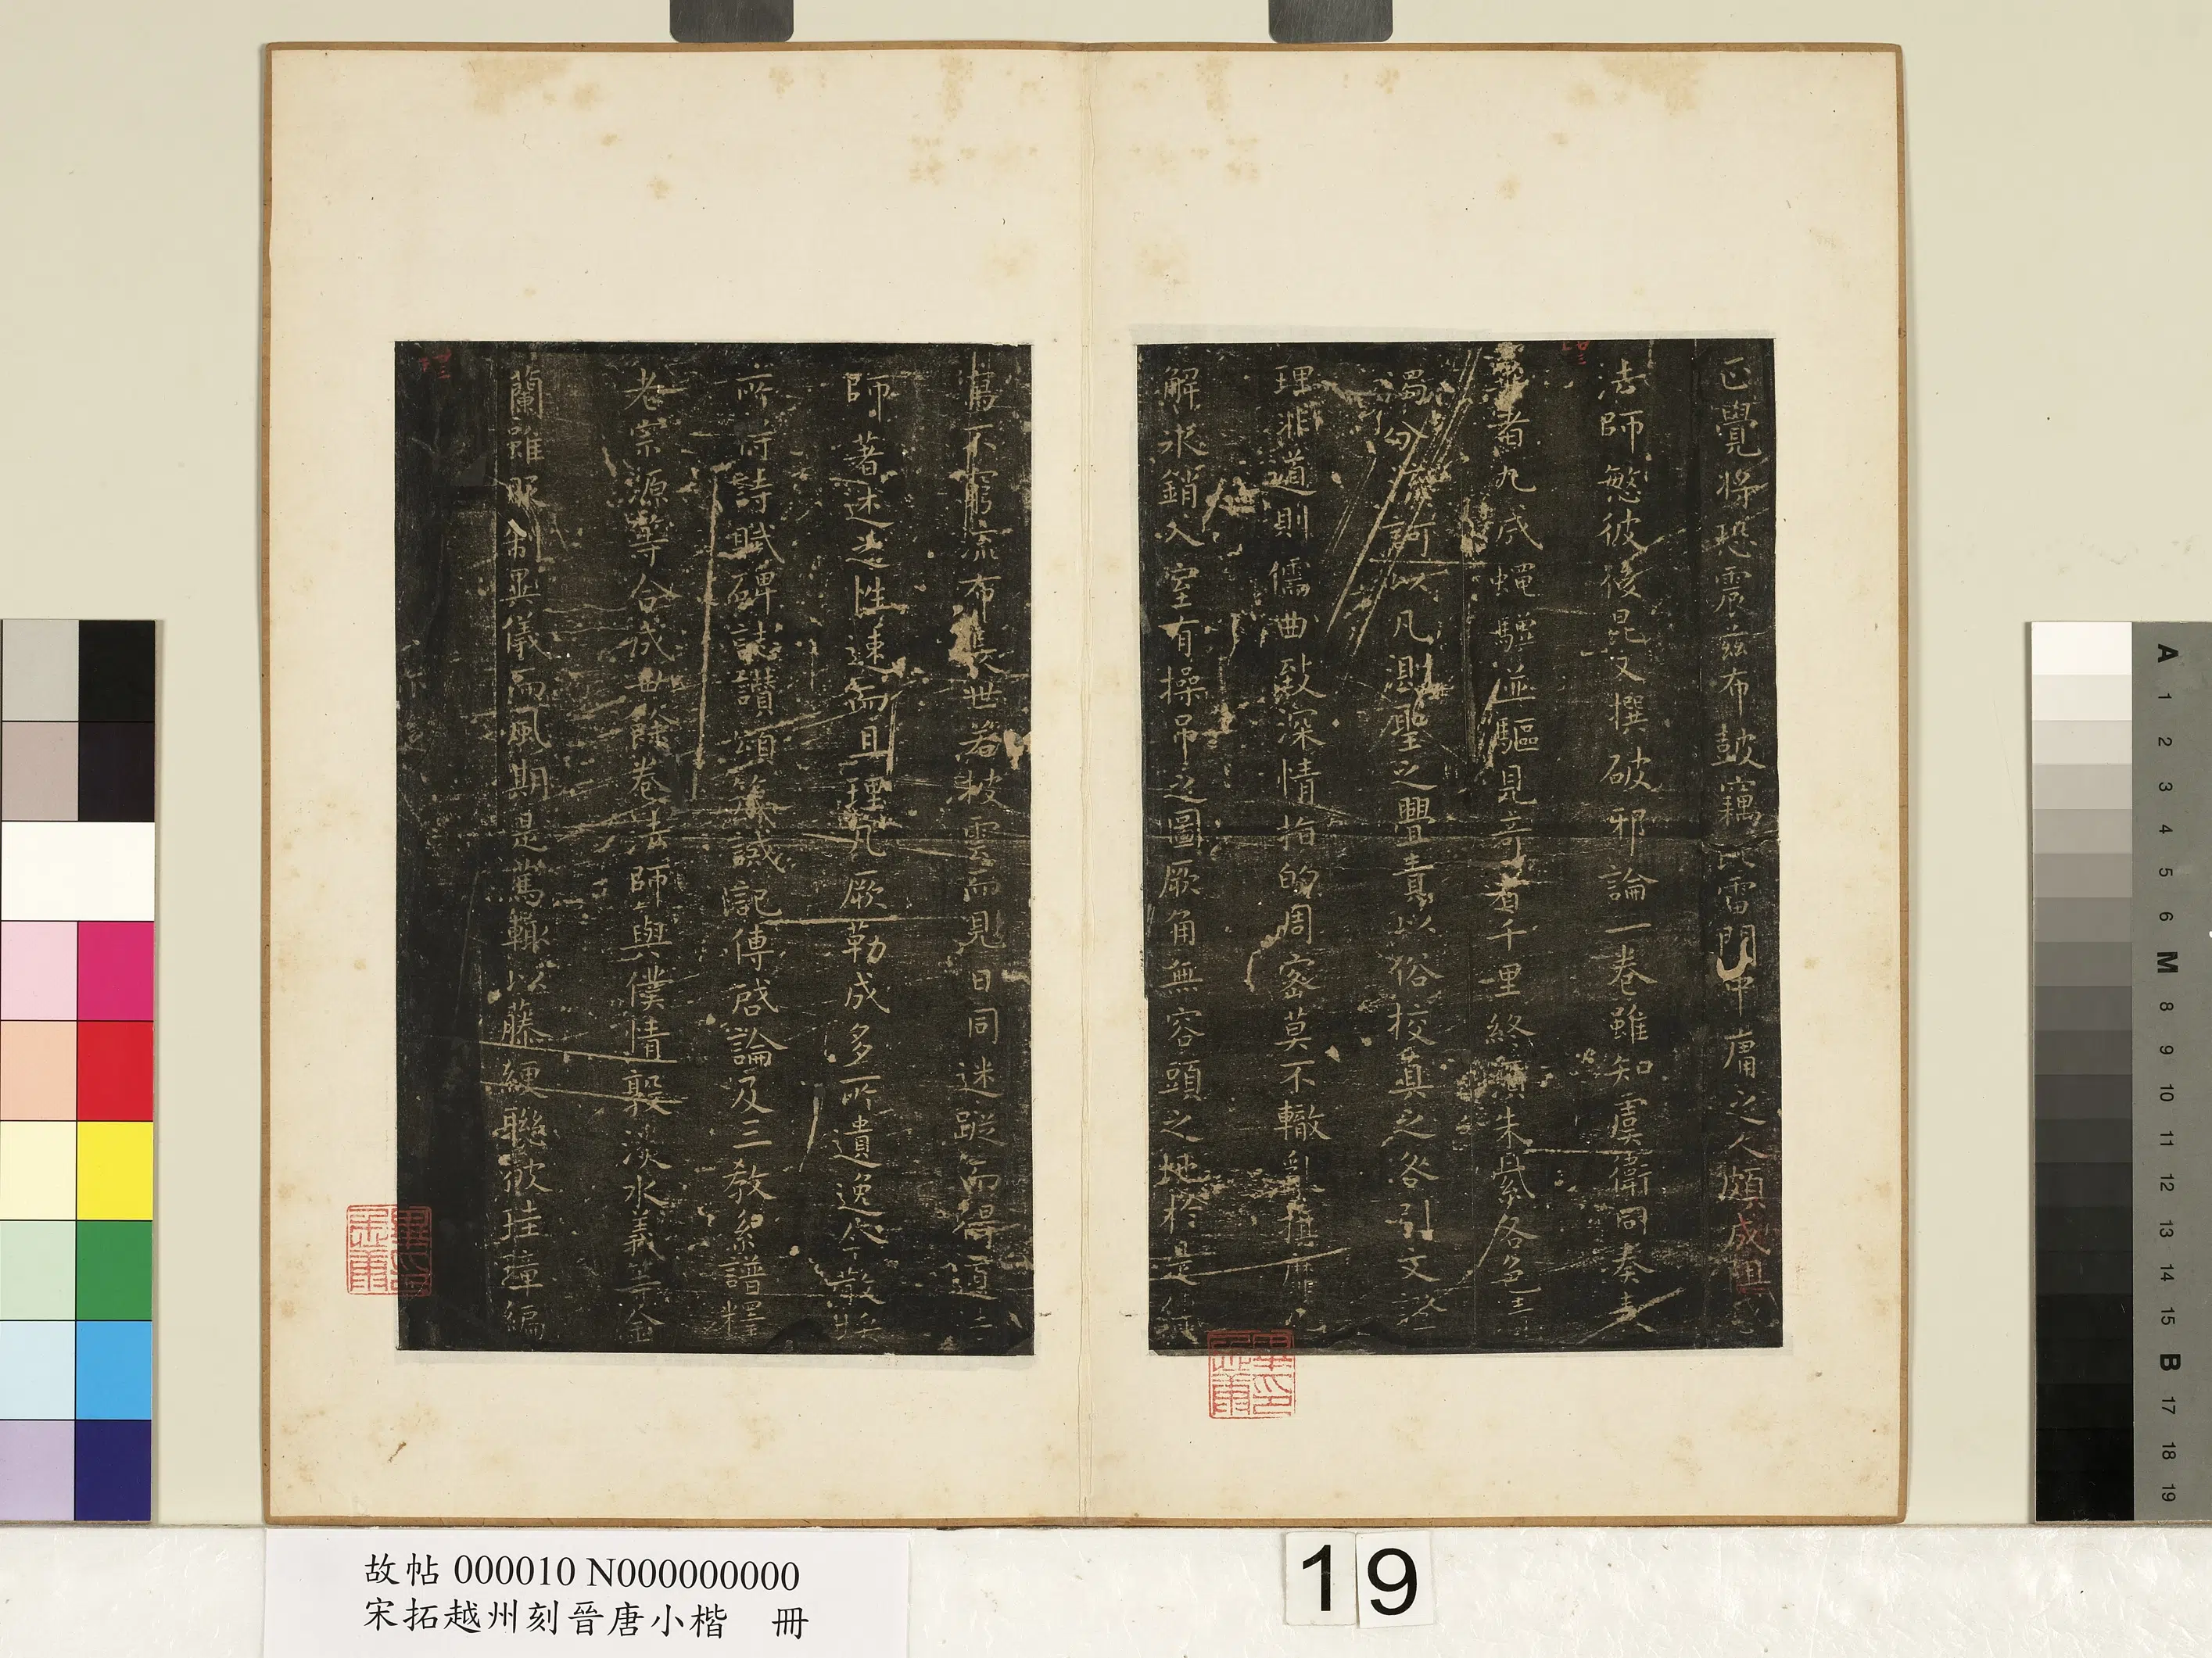 已覺將恐震茲布鼓竊比雷門中庸之人頗成阻惑
法師愍彼後昆又撰破邪論一卷雖知虞衛同奏表
者九成蠅驥並驅見奇者千里終須朱紫各色
濁分流訶以凡測聖之豐責以俗校真之咎引文證
理非道則儒曲致深情指的周密莫不轍亂旗靡
解氷銷入室有操吊之圖厥角無容頭之地於是傳
寫不窮流布長世若披雲而見日同迷蹤而得道
師著述之性速而且理凡厥勒成多所遺逸今散
所誦詩賦碑誌讚頌箴誡記傳啓論及三教系譜釋
老宗源等合成卅餘卷法師與僕情敦淡水義等金
蘭雖服制異儀而風期是篤輒以藤綆聯彼珪璋編
故帖 000010 N000000000
宋拓越州刻晉唐小楷 冊
19
A
1
2
3
4
5
6
M
8
9
10
11
12
13
14
15
B
17
18
19